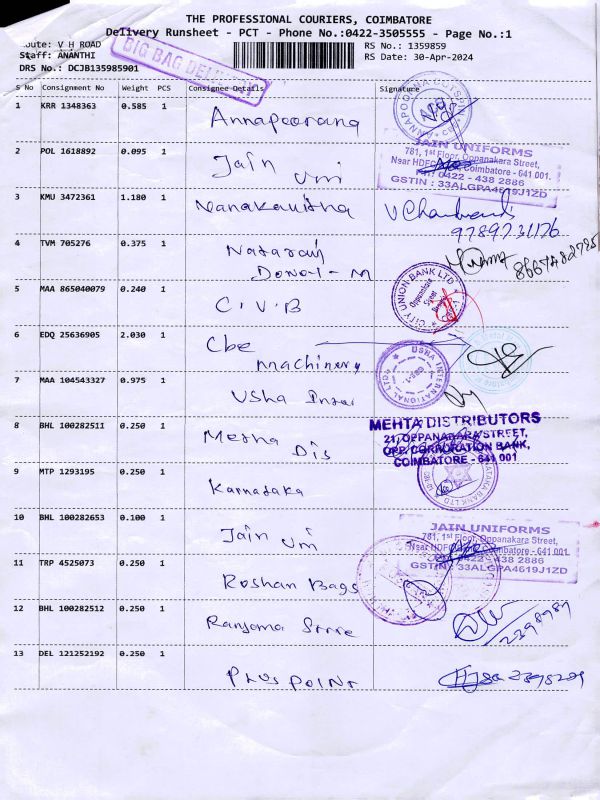 THE PROFESSIONAL COURIERS, COIMBATORE
Delivery Runsheet - PCT - Phone No.:0422-3505555 - Page No.:1
oute: V H ROAD
RS No.: 1359859
Staff: ANANTHI
RS Date: 30-Apr-2024
DRS No.: DCJB135985901
BIG BAG DELIVERY
S No Consignment No Weight PCS Consignee Details Signature
1 KRR 1348363 0.585 1 Annapoorana
2 POL 1618892 0.095 1 Jain Uni
JAIN UNIFORMS
781, 1st Floor, Oppanakara Street,
Near HDFC Coimbatore - 641 001.
0422 - 438 2886
GSTIN : 33ALGPA4619J1ZD
3 KMU 3472361 1.180 1
9789731176
4 TVM 705276 0.375 1 Nataraj
5 MAA 865040079 0.240 1 C.V.B
CITY UNION BANK LTD
Oppanakara Street
6 EDQ 25636905 2.030 1 Cbe machinery
7 MAA 104543327 0.975 1 Usha Inter
USHA INTERNATIONAL LTD
8 BHL 100282511 0.250 1 Mehta Dis
MEHTA DISTRIBUTORS
21, OPPANAKARA STREET,
OPP. CORPORATION BANK,
COIMBATORE - 641 001
9 MTP 1293195 0.250 1 Karnataka
10 BHL 100282653 0.100 1 Jain Uni
JAIN UNIFORMS
781, 1st Floor, Oppanakara Street,
Near HDFC Coimbatore - 641 001
0422 - 438 2886
GSTIN : 33ALGPA4619J1ZD
11 TRP 4525073 0.250 1 Roshan Bags
12 BHL 100282512 0.250 1 Ranjama Store
2398989
13 DEL 121252192 0.250 1 Plus Point